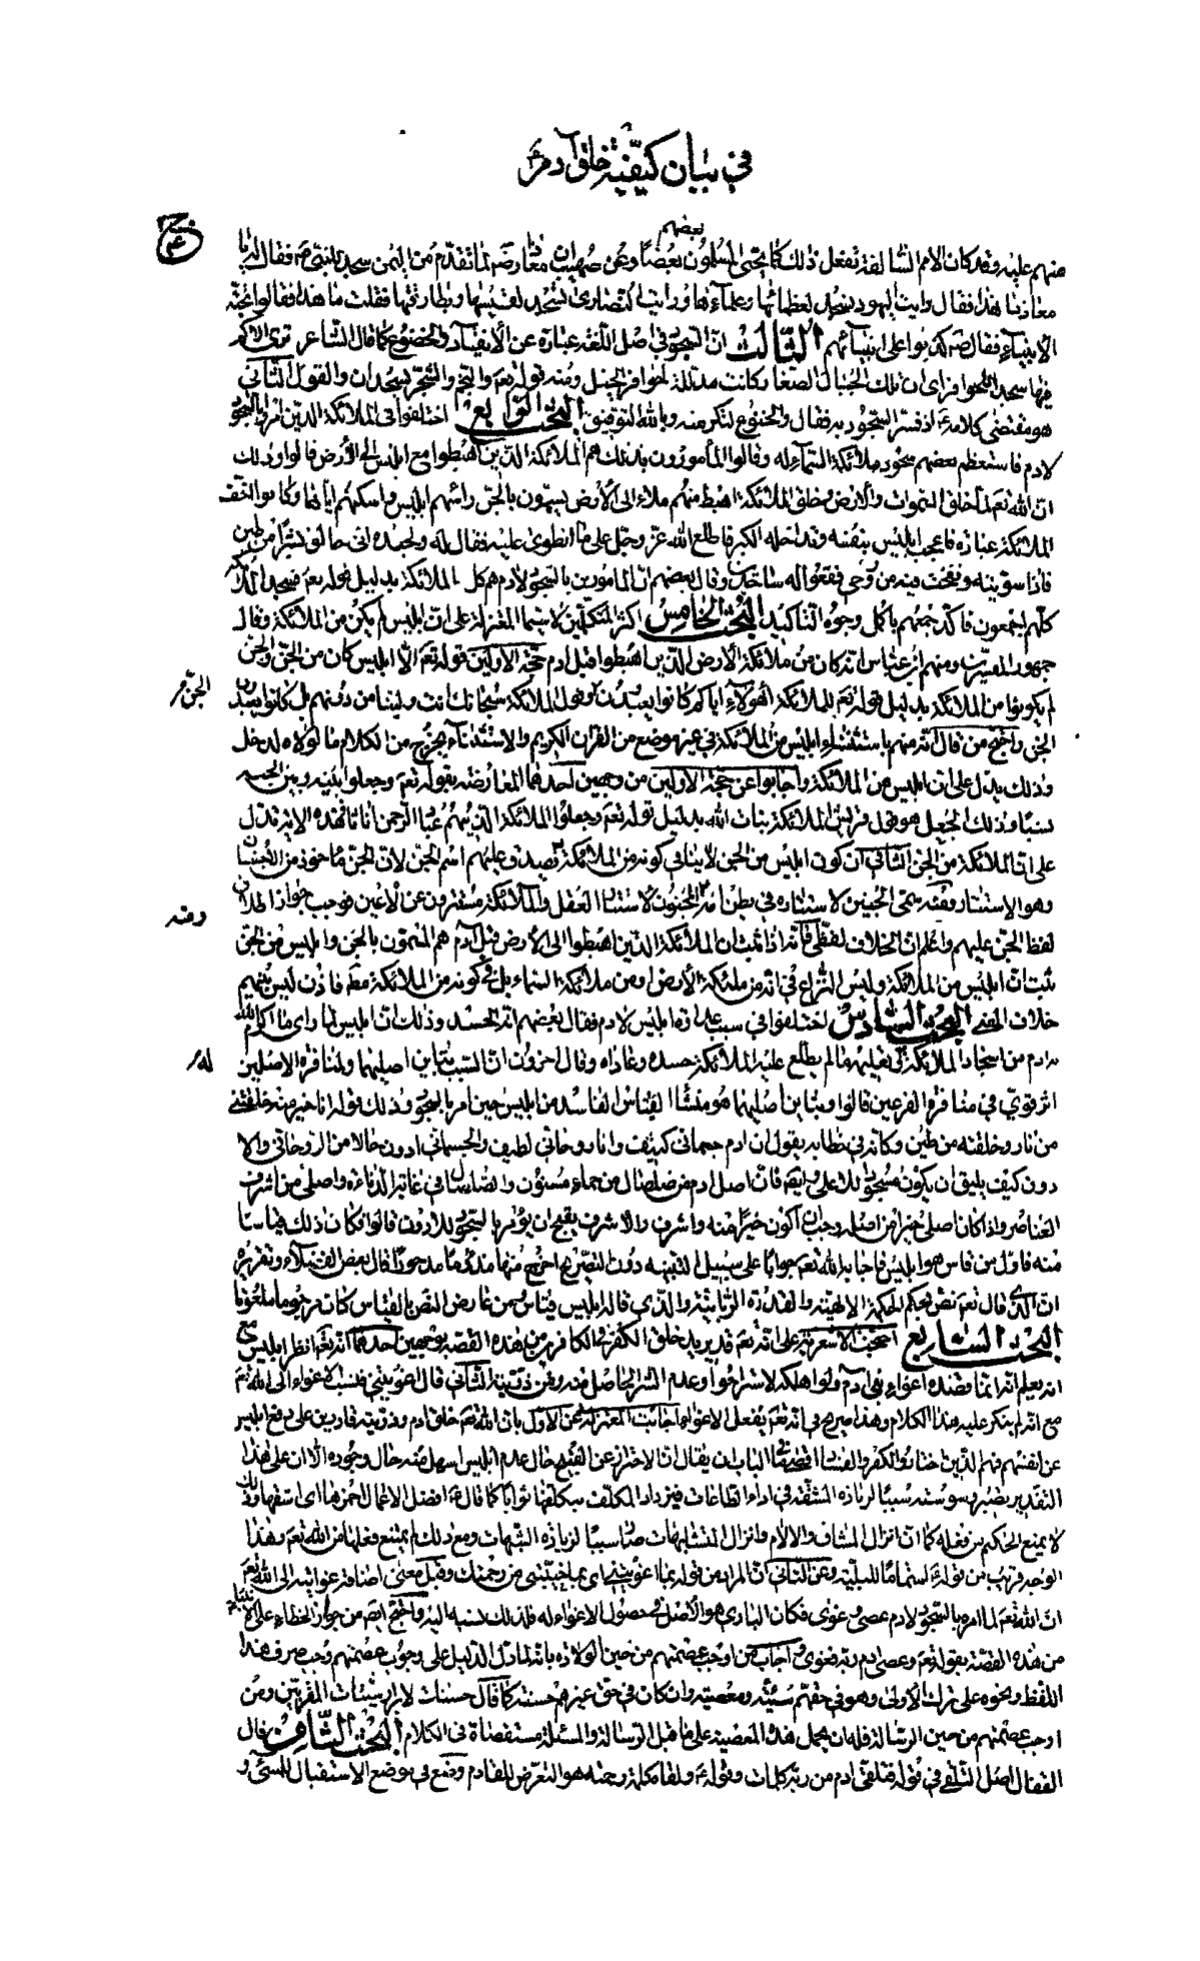 في بيان كيفيّة خلق آدم ع
بعضهم
منهم عليه وقد كان الامم السّالفة تفعل ذلك كما يحيّى المسلمون بعضًا وعن صهيب ان معاذا لمّا تقدّم من اليمن سجد للنبيّ ص فقال له يا
معاذ ما هذا فقال رايت اليهود يسجد لعظمائها وعلماءها ورايت النّصارى تسجد لقسّيسها وبطارقتها فقلت ما هذا فقالوا تحيّة
الانبياء فقال ص كذبوا على انبيائهم الثّالث انّ السّجود في اصل اللّغة عبارة عن الانقياد والخضوع كما قال الشّاعر ترى الاكم
فيها سجدا للحوافر اى انّ تلك الجبال الصّغار كانت مذلّلة لحوافر الخيل ومنه قوله تعم والنّجم والشّجر يسجدان والقول الثّاني
هو مقتضى كلامه ع اذ فسّر السّجود به فقال والخنوع لتكرمته وبالله التوفيق البحث الرّابع اختلفوا في الملائكة الّذين امروا بالسّجود
لادم فاستعظم بعضهم سجود ملائكة السّماء له وقالوا المأمورون بذلك هم الملائكة الّذين اهبطوا مع ابليس الى الأرض قالوا وذلك
انّ الله تعم لمّا خلق السّموات والأرض وخلق الملائكة اهبط منهم ملاء الى الأرض يسمّون بالجنّ رأسهم ابليس واسكنهم ايّاها وكانوا اخفّ
الملائكة عبادة فاعجب ابليس بنفسه وتداخله الكبر فاطّلع الله عزّ وجلّ على ما انطوى عليه فقال له ولجنده انّى خالق بشرا من طين
فاذا سوّيته ونفخت فيه من روحي فقعوا له ساجدين وقال بعضهم انّ المأمورين بالسّجود لادم هم كلّ الملائكة بدليل قوله تعم فسجد الملائكة
كلّهم اجمعون فاكّد جمعهم باكمل وجوه التأكيد البحث الخامس اكثر المتكلّمين لا سيّما المعتزلة على انّ ابليس لم يكن من الملائكة وقال
جمهور المفسّرين ومنهم ابن عبّاس انّه كان من ملائكة الأرض الّذين اهبطوا قبل ادم حجّة الاوّلين قوله تعم الّا ابليس كان من الجنّ والجنّ
الجنّ
لم يكونوا من الملائكة بدليل قوله تعم للملائكة أهؤلاء ايّاكم كانوا يعبدون وقول الملائكة سبحانك انت وليّنا من دونهم بل كانوا يعبدون
الجنّ واحتجّ من قال انّه منهم باستثناء ابليس من الملائكة في غير موضع من القران الكريم والاستثناء يخرج من الكلام ما لولاه لدخل
وذلك يدلّ على انّ ابليس من الملائكة واجابوا عن حجّة الاوّلين من وجهين احدهما المعارضة بقوله تعم وجعلوا بينه وبين الجنّة
نسبًا وذلك الجعل هو قول قريش الملائكة بنات الله بدليل قوله تعم وجعلوا الملائكة الّذين هم عباد الرّحمن اناثا فهذه الاية تدلّ
على انّ الملائكة من الجنّ الثّاني انّ كون ابليس من الجنّ لا ينافي كونه من الملائكة يصدق عليهم اسم الجنّ لانّ الجنّ مأخوذ من الاجتنان
ومنه
وهو الاستتار ومنه سمّى الجنين لاستتاره في بطن امّه المجنون لاستتار العقل والملائكة مستترون عن الأعين فوجب جواز اطلاق
لفظ الجنّ عليهم واعلم انّ الخلاف لفظي فانّه اذا ثبت ان الملائكة الّذين اهبطوا الى الأرض قبل آدم هم المسمّون بالجنّ وابليس من الجنّ
ثبت انّ ابليس من الملائكة وليس النّزاع في انّه من ملئكة الأرض او من ملائكة السّماء بل في كونه من الملائكة مطم فاذن ليس بينهم
خلاف في المعنى البحث السّادس اختلفوا في سبب عداوة ابليس لادم فقال بعضهم انّه الحسد وذلك انّ ابليس لمّا راى ما اكرم الله
له
به ادم من اسجاد الملائكة وتعليمه ما لم يطّلع عليه الملائكة حسده وعاداه وقال اخرون انّ السّبب تباين اصليهما ولمنافرة الاصلين
اثر قويّ في منافرة الفرعين قالوا وتباين اصليهما هو منشأ القياس الفاسد من ابليس حين امر بالسّجود وذلك قوله انا خير منه خلقتني
من نار وخلقته من طين وكانّه في خطابه يقول ان ادم جسماني كثيف وانا روحاني لطيف والجسماني ادون حالا من الرّوحاني والا
دون كيف يليق ان يكون مسجودا للاعلى وايضم فانّ اصل ادم من صلصال من حماء مسنون والصّلصال في غاية الدّناءة واصلي من اشرف
العناصر واذا كان اصلي خيرا من اصله وجب ان اكون خيرًا منه واشرف والاشرف يقبح ان يؤمر بالسّجود للادون قالوا وكان ذلك قياسا
منه فاوّل من قاس هو ابليس فاجابه الله تعم جوابًا على سبيل التّنبيه دون التّصريح اخرج منها مذؤمًا مدحورًا قال بعض الفضلاء وتقريره
انّ الّذى قال تعم نصّ بحكم الحكمة الالهيّة والقدرة الرّبّانيّة والّذى قاله ابليس قياس ومن عارض النّص بالقياس كان مرجوما ملعونا
البحث السّابع احتجّت الأشعريّة على انّه تعم قد يريد خلق الكفر في الكافر من هذه القصّة بوجهين احدهما انّه تعم انظر ابليس مع
انّه يعلم انّه انّما قصده اغواء بنى آدم ولو اهلكه لاستراحوا وعدم الشّرّ الحاصل منه ومن ذرّيته الثّاني قال اغويتني فنسب الاغواء الى الله تعم
مع انّه لم ينكر عليه هذا الكلام وهذا صريح في انّه تعم يفعل الاغواء اجابت المعتزلة عن الاوّل بانّ الله تعم خلق ادم وذرّيته قادرين على دفع ابليس
عن انفسهم فهم الّذين اختاروا الكفر والفساد اقصى ما في الباب ان يقال انّ الاحتراز عن القبيح حال عدم ابليس اسهل منه حال وجوده الّا ان على هذا
التّقدير يصير وسوسته سببًا لزيادة المشقّة في اداء الطّاعات فيزداد المكلّف بتكلّفها ثوابًا كما قال ع افضل الاعمال احمزها اى اشقّها وذلك
لا يمنع الحكيم من فعله كما انّ انزال المشاق والالام وانزال المتشابهات صار سببًا لزيادة الشّبهات ومع ذلك لم يمتنع فعلها من الله تعم وهذا
الوجه قريب من قوله ع استتمامًا للبليّة وعن الثّاني انّ المراد من قوله بما اغويتني اى بما خيّبتني من رحمتك وقيل معنى اضافة غوايته الى الله تعم
انّ الله تعم لمّا امره بالسّجود لادم عصى وغوى فكان البارى هو الأصل في حصول الاغواء له فلذلك نسبه اليه واحتجّ ايضم من جوّز الخطاء على الانبياء
من هذه القصّة بقوله تعم وعصى ادم ربّه فغوى واجاب من اوجب عصمتهم من حين الولادة بانّه لمّا دلّ الدّليل على وجوب عصمتهم وجب صرف هذا
اللفظ ونحوه على ترك الأولى وهو في حقّهم سيّئة ومعصية وان كان في حقّ غيرهم حسنة كما قال حسنات الابرار سيّئات المقرّبين ومن
اوجب عصمتهم من حين الرّسالة فله ان يحمل هذه المعصية على ما قبل الرّسالة والمسئلة مستقصاة في الكلام البحث الثّامن قال
القفال اصل التلقّى في قوله فتلقّى ادم من ربّه كلمات وقوله ع ولقّاه كلمة رحمته هو التعرّض للقادم وضع في موضع الاستقبال للمسيء و